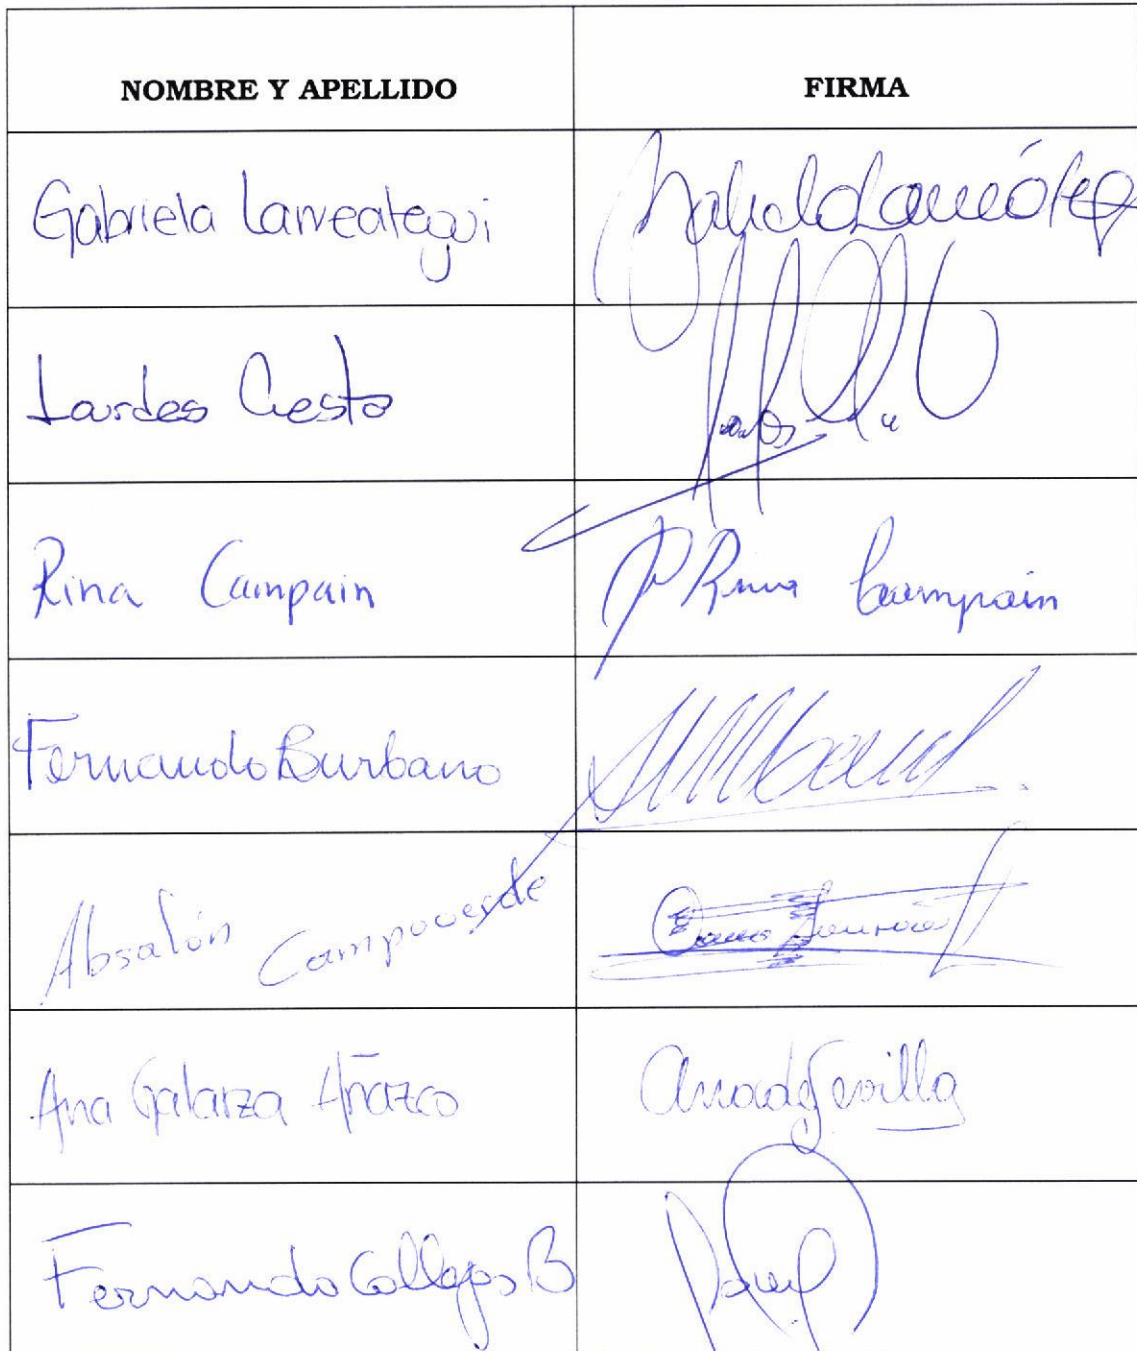 NOMBRE Y APELLIDO FIRMA
Gabriela Larreategui
Lourdes Cuesta
Rina Campain Rina Campain
Fernando Burbano
Absalón Campoverde
Ana Galarza Añazco Ana de Sevilla
Fernando Callejas B